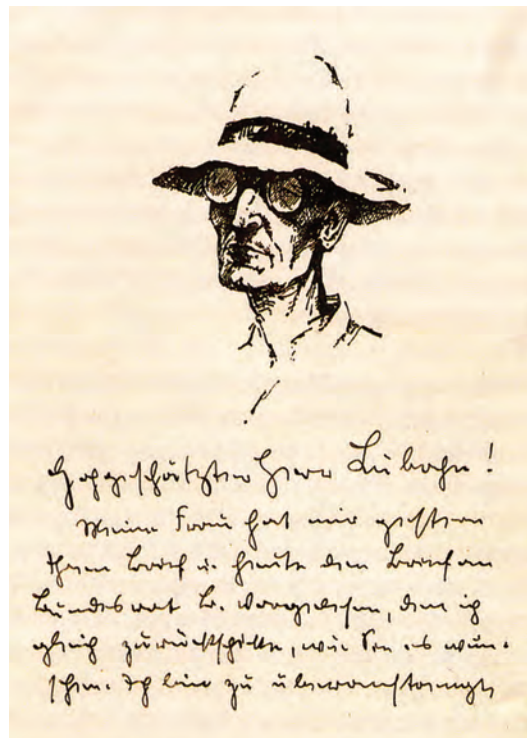 Hochgeschätzter Herr Lubahn!
Meine Frau hat mir gestern
Ihren Brief u. heute den Brief an
Bundesrat B. vorgelesen, den ich
gleich zurückschicke, wie Sie es wün-
schen. Ich bin zu überanstrengt,